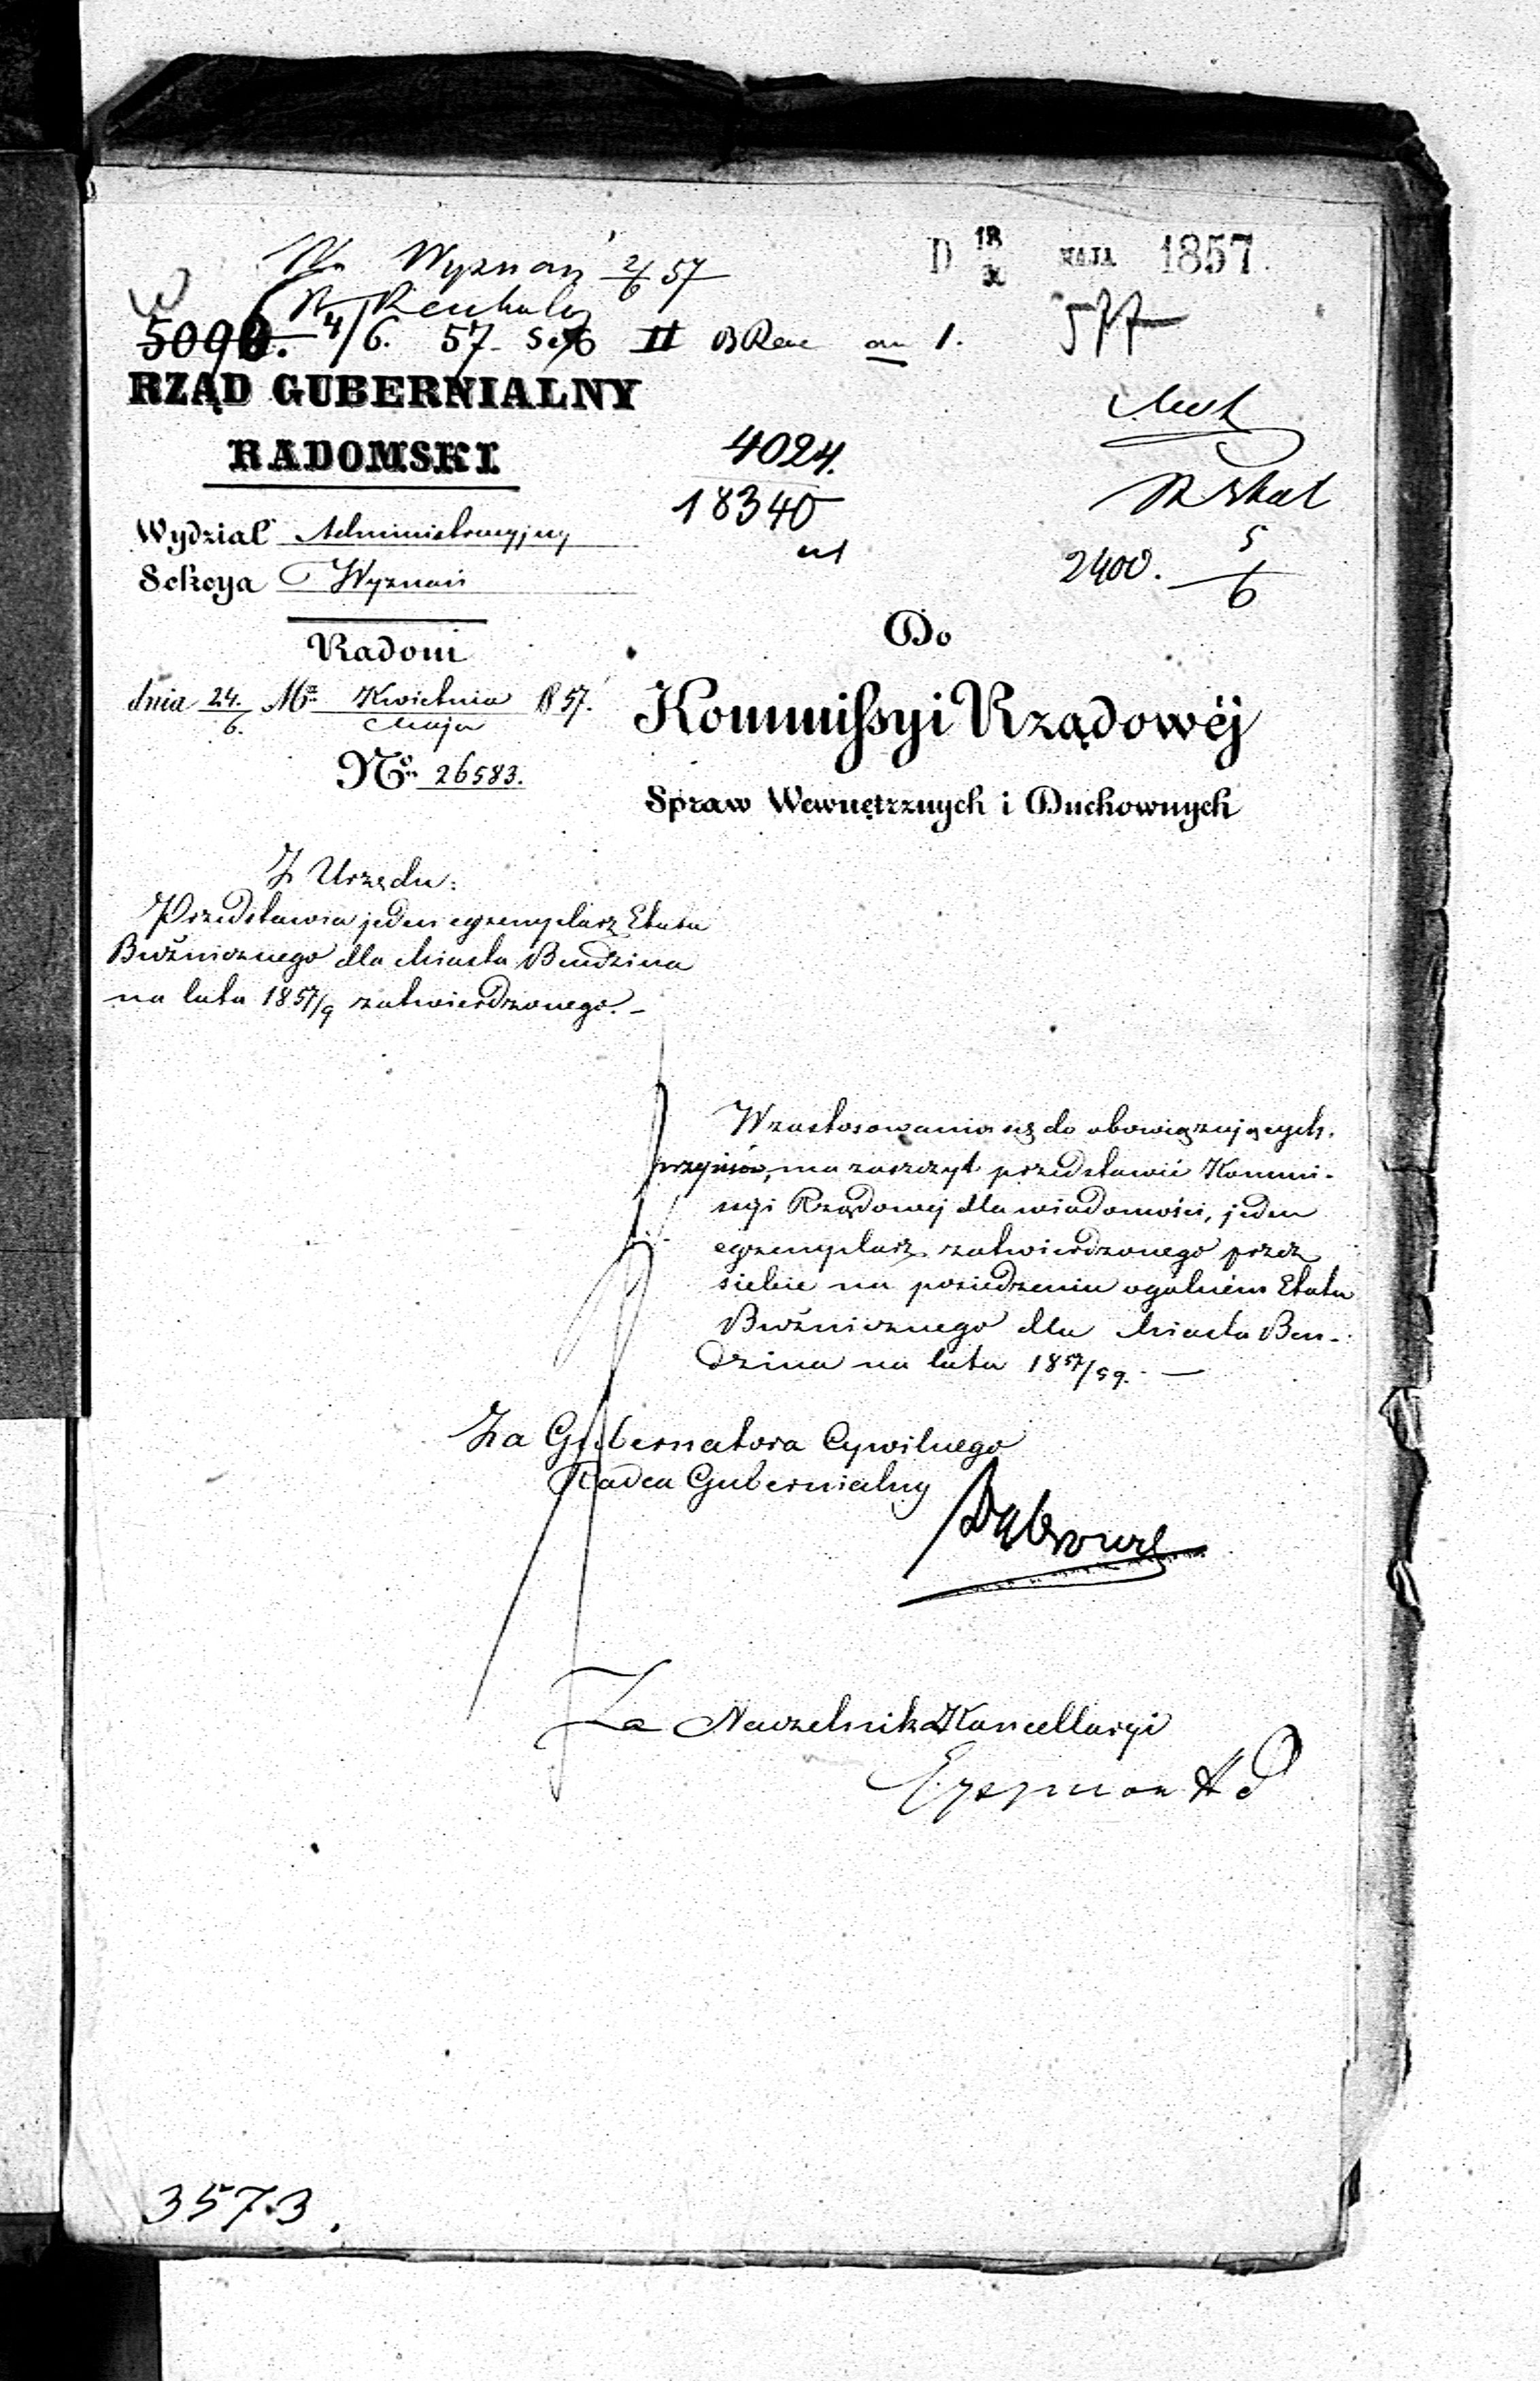 Wyznań 2/6 57
D 18 MAJA 1857.
577
5090. 4/6. 57. II an 1.
RZĄD GUBERNIALNY
RADOMSKI
4024.
18340
2400. 5/6
Wydział Administracyjny
Sekcya Wyznań
Radom
dnia 24./6. Mca Kwietnia/Maja 1857.
No 26583.
Do
Kommissyi Rządowéj
Spraw Wewnętrznych i Duchownych
Z Urzędu:
Przedstawia jeden egzemplarz Etatu
Bużnicznego dla Miasta Bendzina
na lata 1857/9 zatwierdzonego. –
W zastosowaniu się do obowiązujących
przepisów, ma zaszczyt przedstawić Kommi-
ssyi Rządowej dla wiadomości, jeden
egzemplarz zatwierdzonego przez
siebie na posiedzeniu ogólném Etatu
Bużnicznego dla Miasta Ben-
dzina na lata 1857/59. —
Za Gubernatora Cywilnego
Radca Gubernialny
Za Naczelnika Kancellaryi
3573.